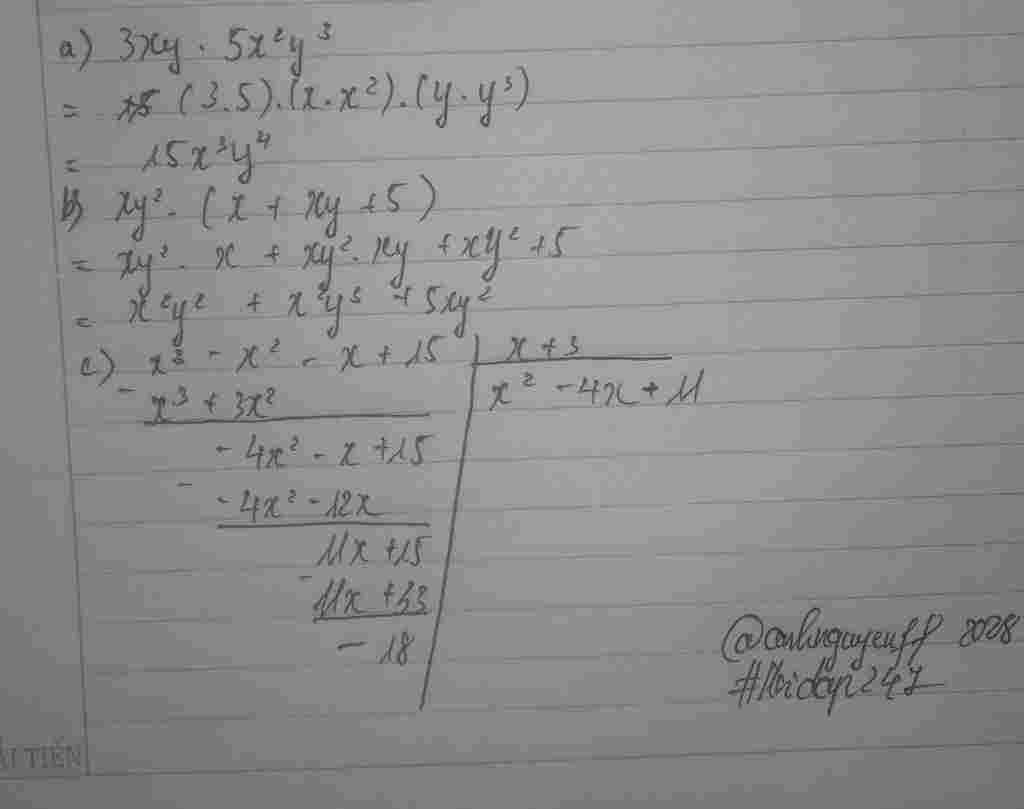 a) 3xy . 5x²y³
= (3.5).(x.x²).(y.y³)
= 15x³y⁴
b) xy². (x + xy + 5)
= xy². x + xy². xy + xy² + 5
= x²y² + x²y³ + 5xy²
c) x³ - x² - x + 15 | x + 3
- x³ + 3x² | x² - 4x + 11
- 4x² - x + 15
- - 4x² - 12x
11x + 15
- 11x + 33
- 18
2028
ẢI TIẾN